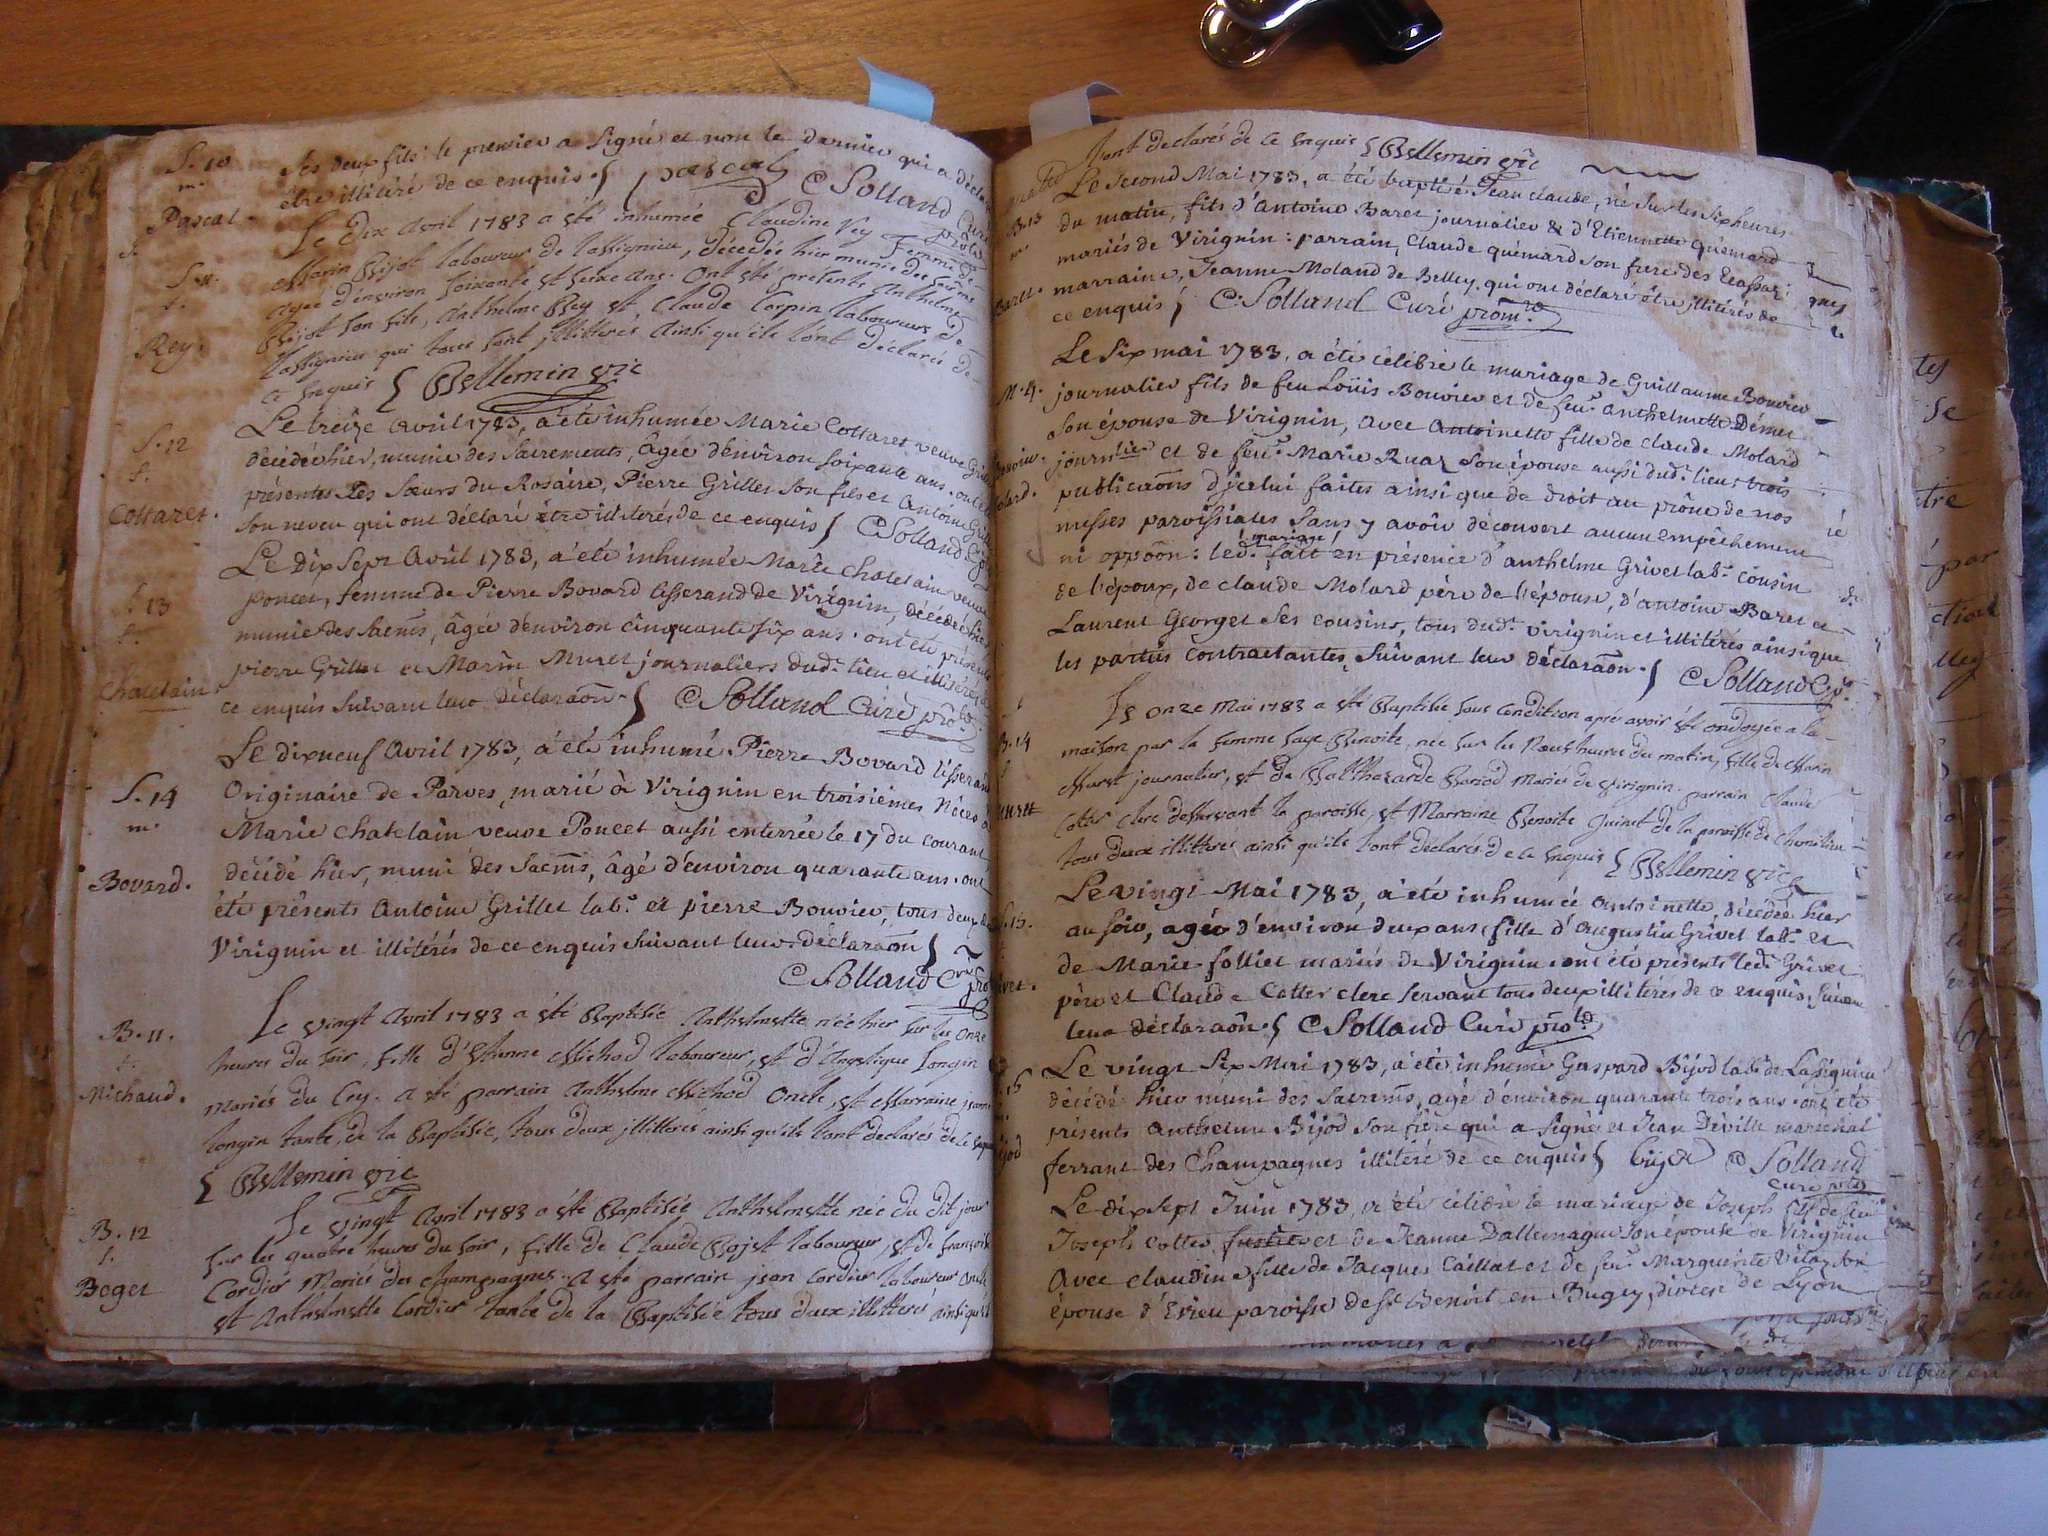 S. 10
m.
Pascal.
ses deux fils: le premier a signé et non le dernier qui a déclaré
être illitéré de ce enquis. pascal C Solland Curé
S. 11.
f.
Rey.
Le dix avril 1783 a été inhumée Claudine Rey femme de
Marin Bijot laboureur de lassignieu, décédée hier munie des sacrms
agée d'environ soixante et seize ans. Ont été présents Anthelme
Bijot son fils, Anthelme Rey et Claude Carpin laboureurs de
lassignieu qui tous sont illitterés ainsi qu'ils l'ont déclarés de
ce enquis Bellemin vic
S. 12
f.
Cottaret.
Le treize avril 1783, a été inhumée Marie Cottaret veuve Grillet
décédée hier, munie des sacrements, âgée d'environ soixante ans. ont été
présentes Les sœurs du Rosaire, Pierre Grillet son fils et Antoine Grillet
son neveu qui ont déclaré être illitérés de ce enquis C Solland
S. 13
f.
Chatelain.
Le dix sept Avril 1783, a été inhumée Marie Chatelain veuve
Poncet, femme de Pierre Bovard tisserand de Virignin, décédée hier
munie des sacms, âgée d'environ cinquante six ans. ont été présents
pierre Grillet et Marin Muret journaliers dudt. lieu et illitérés
ce enquis suivant leur déclaraõn. C Solland Curé prõb.
S. 14
m.
Bovard.
Le dixneuf Avril 1783, a été inhumé Pierre Bovard tisserand
Originaire de Parves, marié à Virignin en troisiémes Nôces à
Marie Chatelain veuve Poncet aussi enterrée le 17 du courant
décédé hier, muni des sacms, âgé d'environ quarante ans. ont
été présents Antoine Grillet labr. et pierre Bouvier, tous deux de
Virignin et illitérés de ce enquis suivant leur déclaraõn
C Solland
B. 11.
f.
Michaud.
Le vingt Avril 1783 a été Baptisée Anthelmette née hier sur les onze
heures du soir, fille d'Etienne Michod laboureur, et d'Angelique Longin
Mariés du Ley. a été parrain Anthelme Michod Oncle, et Marraine
longin tante, de la Baptisée, tous deux illitterés ainsi qu'ils l'ont declarés de ce enquis
Bellemin vic
B. 12
f.
Boget
Le vingt Avril 1783 a été Baptisée Anthelmette née du dit jour
sur les quatre heures du soir, fille de Claude Bojet laboureur, et de françoise
Cordier Mariés des champagnes. a été parrain jean Cordier laboureur oncle
et Anthelmette Cordier tante de la Baptisée tous deux illitterés ainsi qu'ils
l'ont declarés de ce enquis Bellemin vic
B. 13
m.
Baret.
Le second Mai 1783, a été baptisé Jean claude, né sur les six heures
du matin, fils d'Antoine Baret journalier & d'Etiennette Quemard
mariés de Virignin: parrain, Claude quémard son frere des
marraine, Jeanne Moland de Belley. qui ont déclaré être illitérés de
ce enquis C. Solland Curé
M. 4.
Le six mai 1783, a été célébré le mariage de Guillaume Bouvier
journalier fils de feu Loüis Bouvier et de feue. anthelmette Démet
son épouse de Virignin, avec Antoinette fille de Claude Molard
journlier et de feue. Marie Ruaz son épouse aussi dudt. lieu: trois
publicaõns d'jcelui faites ainsi que de droit au prône de nos
messes paroissiales sans y avoir découvert aucun empêchement
ni opposõn: ledt. mariage fait en présence d'anthelme Grivet labr. cousin
de l'époux, de claude Molard père de l'épouse, d'antoine Baret et
Laurent Georget ses cousins, tous dudt. virignin et illitérés ainsi que
les parties contractantes, suivant leur déclaraõn. C Solland
B. 14
f
Muret
Le onze Mai 1783 a été Baptisée sous condition après avoir été ondoyée a la
maison par la femme sage Benoite, née sur les Neuf heures du matin, fille de Marin
Muret journalier, et de Balthazarde Mariés de virignin. parrain Claude
Cotter clerc desservant la paroisse, et Marraine Benoite Guinet de la paroisse de
tous deux illitteres ainsi qu'ils l'ont declarés de ce enquis Bellemin vic
S. 15.
Grivet.
Le vingt Mai 1783, a été inhumée Antoinette, décédée hier
au soir, agée d'environ deux ans, fille d'Augustin Grivet labr. et
de Marie folliet mariés de Virignin. ont été présents ledt. Grivet
père et Claude Cotter clerc servant tous deux illiteres de ce enquis, suivant
leur déclaraõn. C Solland Curé
Le vingt six Mai 1783, a été inhumé Gaspard Bijod labr. de Lassignieu
décédé hier muni des sacrems, agé d'environ quarante trois ans. ont été
présents Anthelme Bijod son frère qui a signé et Jean Déville maréchal
ferrant des Champagnes illitéré de ce enquis bijod C Solland
Curé
Le dix sept Juin 1783, a été célébré le mariage de Joseph fils de feu
Joseph Cotter et de Jeanne Dallemagne son épouse de Virignin
Avec claudine fille de Jacques Caillat et de feue. Marguerite son
épouse d'Evieu paroisse de st. Benoit en Bugey, diocese de Lyon